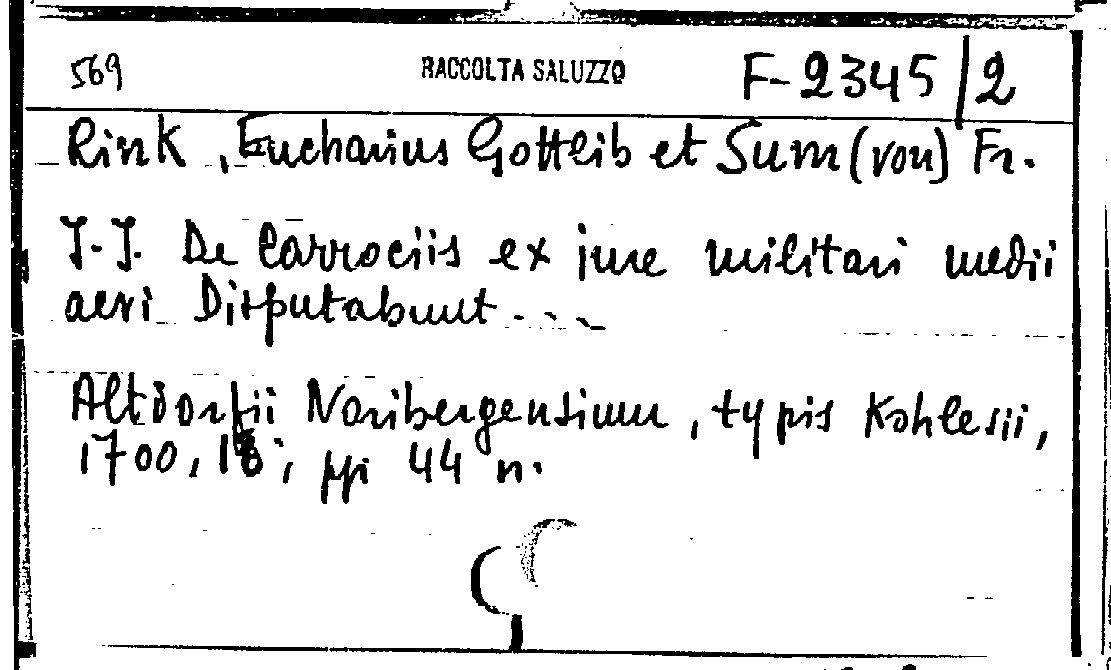 569 RACCOLTA SALUZZO F-2345/2
Rink, Eucharius Gottlieb et Sum (von) Fr.
J.J. De Carrociis ex jure militari medii
aevi Disputabunt ...
Altdorfii Noribergensium, typis Kohlesii,
1700, 18°; pp 44 n.